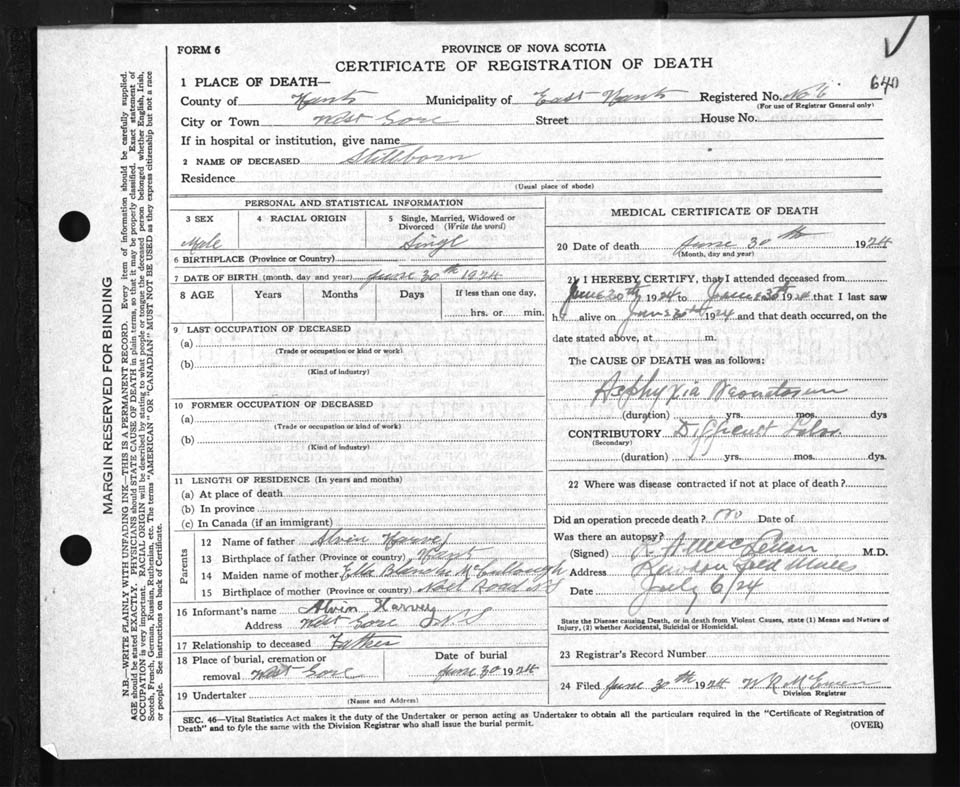 FORM 6
PROVINCE OF NOVA SCOTIA
CERTIFICATE OF REGISTRATION OF DEATH
640
1 PLACE OF DEATH—
County of Hants Municipality of East Hants Registered No. No. 6
(For use of Registrar General only)
City or Town West Gore Street House No.
If in hospital or institution, give name
2 NAME OF DECEASED Stillborn
Residence
(Usual place of abode)
PERSONAL AND STATISTICAL INFORMATION
3 SEX 4 RACIAL ORIGIN 5 Single, Married, Widowed or Divorced (Write the word)
Male Singl
6 BIRTHPLACE (Province or Country)
7 DATE OF BIRTH (month, day and year) June 30th 1924
8 AGE Years Months Days If less than one day,
hrs. or min.
9 LAST OCCUPATION OF DECEASED
(a)
(Trade or occupation or kind or work)
(b)
(Kind of industry)
10 FORMER OCCUPATION OF DECEASED
(a)
(Trade or occupation or kind of work)
(b)
(Kind of industry)
11 LENGTH OF RESIDENCE (In years and months)
(a) At place of death
(b) In province
(c) In Canada (if an immigrant)
Parents
12 Name of father Alvin Harvey
13 Birthplace of father (Province or country) Hants
14 Maiden name of mother Ella Blanche McCullough
15 Birthplace of mother (Province or country) Noel Road NS
16 Informant's name Alvin Harvey
Address West Gore N.S
17 Relationship to deceased Father
18 Place of burial, cremation or removal West Gore
Date of burial
June 30 1924
19 Undertaker
(Name and Address)
MEDICAL CERTIFICATE OF DEATH
20 Date of death June 30th 1924
(Month, day and year)
21 I HEREBY CERTIFY, that I attended deceased from
June 30th 1924 to June 30th 1924 that I last saw
h alive on June 30th 1924 and that death occurred, on the
date stated above, at m.
The CAUSE OF DEATH was as follows:
Asphyxia Neonatorum
(duration) yrs. mos. dys
CONTRIBUTORY Difficult Labor
(Secondary)
(duration) yrs. mos. dys.
22 Where was disease contracted if not at place of death?
Did an operation precede death? no Date of
Was there an autopsy?
(Signed) R A McLellan M.D.
Address Rawdon Gold Mines
Date July 6/24
State the Disease causing Death, or in death from Violent Causes, state (1) Means and Nature of Injury, (2) whether Accidental, Suicidal or Homicidal.
23 Registrar's Record Number
24 Filed June 30th 1924 W R McEwen
Division Registrar
SEC. 46—Vital Statistics Act makes it the duty of the Undertaker or person acting as Undertaker to obtain all the particulars required in the "Certificate of Registration of
Death" and to fyle the same with the Division Registrar who shall issue the burial permit.
(OVER)
MARGIN RESERVED FOR BINDING
N.B.—WRITE PLAINLY WITH UNFADING INK—THIS IS A PERMANENT RECORD. Every item of information should be carefully supplied.
AGE should be stated EXACTLY. PHYSICIANS should STATE CAUSE OF DEATH in plain terms, so that it may be properly classified. Exact statement of
OCCUPATION is very important. RACIAL ORIGIN will be described by stating to what people or tongue the deceased person belonged whether English, Irish,
Scotch, French, German, Russian, Ruthenian, etc. The terms "AMERICAN" OR "CANADIAN" MUST NOT BE USED as they express citizenship but not a race
or people. See instructions on back of Certificate.